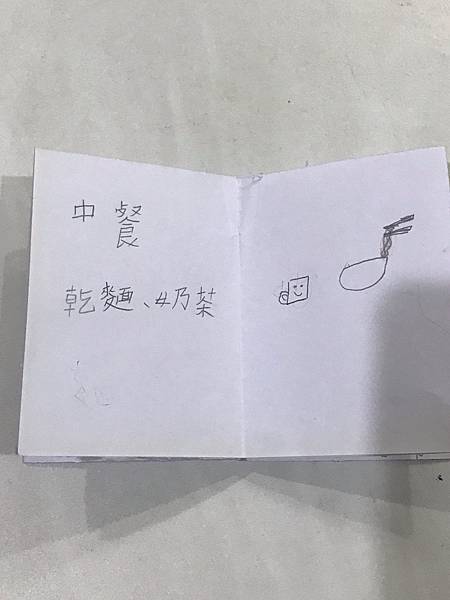 中餐
乾麵、奶茶